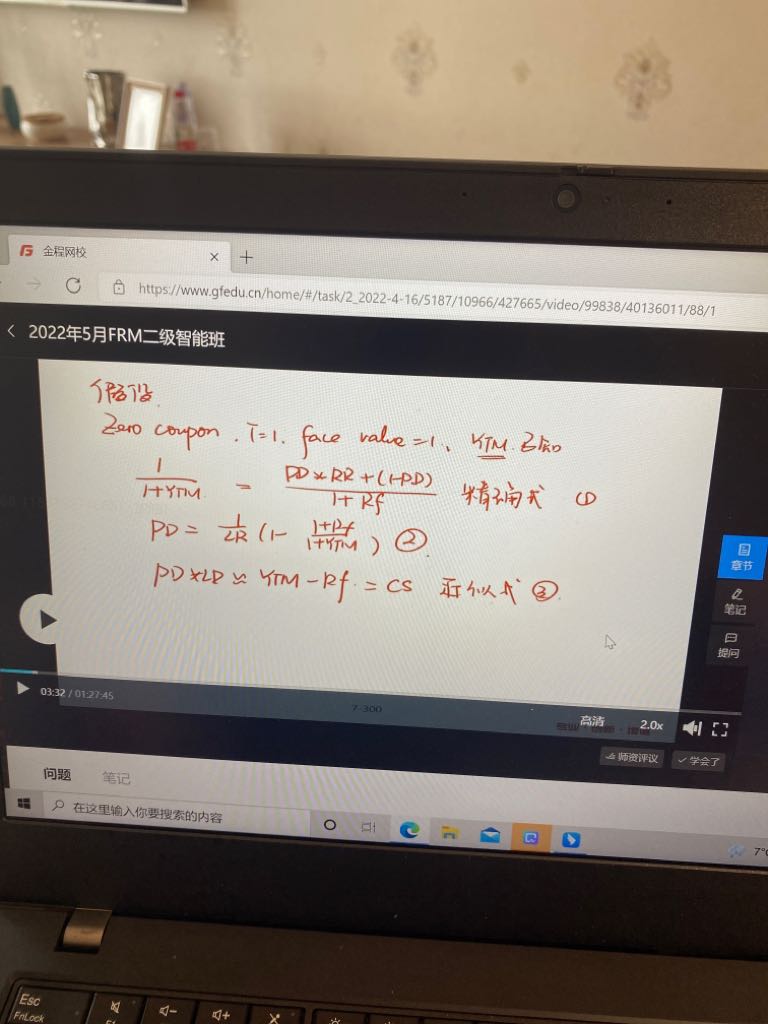 金程网校
https://www.gfedu.cn/home/#/task/2_2022-4-16/5187/10966/427665/video/99838/40136011/88/1
2022年5月FRM二级智能班
假设
Zero coupon. T=1. face value=1、 YTM 已知
1/(1+YTM) = (PD×RR+(1-PD))/(1+Rf) 精确式 ①
PD = 1/LR (1- (1+Rf)/(1+YTM)) ②.
PD×LR ≈ YTM-Rf = CS 近似式 ③.
章节
笔记
提问
03:32 / 01:27:45
7-300
高清
2.0x
师资评议
学会了
问题
笔记
在这里输入你要搜索的内容
7°
Esc
FnLock
F1